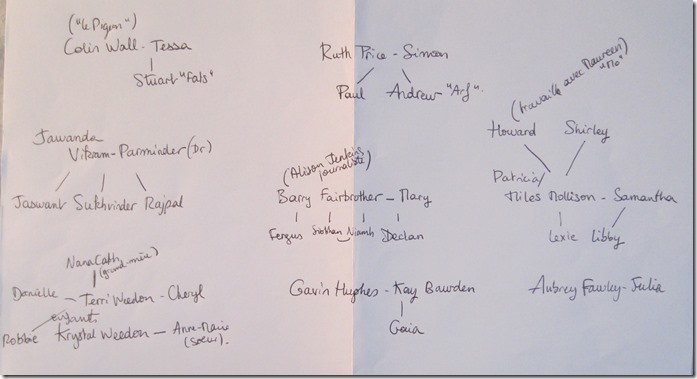 ("Le Pigeon")
Colin Wall - Tessa
Stuart "Fats"
Ruth Price - Simon
Paul Andrew "Arf".
(travaille avec Maureen)
"Mo"
Howard Shirley
Patricia/
Miles Mollison - Samantha
Lexie Libby
Jawanda
Vikram - Parminder (Dr)
Jaswant Sukhvinder Rajpal
(Alison Jenkins
journaliste)
Barry Fairbrother - Mary
Fergus Siobhan Niamh Declan
Nana Cath
(grand-mère)
Danielle - Terri Weedon - Cheryl
enfants
Robbie Krystal Weedon - Anne-Marie
(soeur).
Gavin Hughes - Kay Bawden
Gaia
Aubrey Fawley - Julia